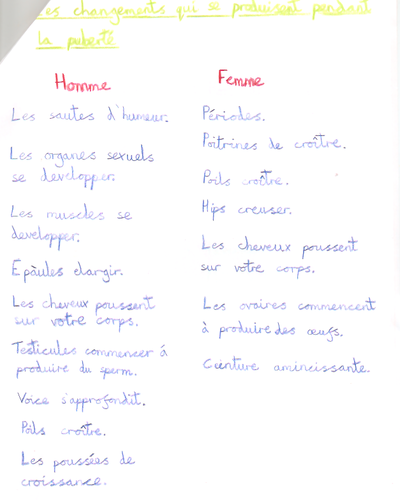 Les changements qui se produisent pendant
la puberté
Homme
Les sautes d'humeur.
Les organes sexuels
se developper.
Les muscles se
developper.
Epàules elargir.
Les cheveux poussent
sur votre corps.
Testicules commencer à
produire du sperm.
Voice s'approfondit.
Poils croître.
Les poussées de
croissance.
Femme
Périodes.
Poitrines de croître.
Poils croître.
Hips creuser.
Les cheveux poussent
sur votre corps.
Les ovaires commencent
à produire des œufs.
Ceinture amincissante.